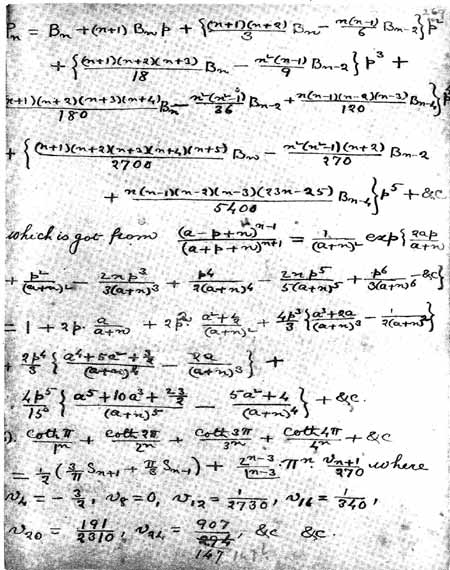 269
Pn = Bn + (n+1) Bn p + {(n+1)(n+2)/3 Bn − n(n-1)/6 Bn-2} p²
+ {(n+1)(n+2)(n+3)/18 Bn − n²(n-1)/9 Bn-2} p³ +
(n+1)(n+2)(n+3)(n+4)/180 Bn − n²(n²-1)/36 Bn-2 + n(n-1)(n-2)(n-3)/120 Bn-4} p⁴
+ {(n+1)(n+2)(n+3)(n+4)(n+5)/2700 Bn − n²(n²-1)(n+2)/270 Bn-2
+ n(n-1)(n-2)(n-3)(23n-25)/5400 Bn-4} p⁵ + &c
which is got from (a-p+n)ⁿ⁻¹/(a+p+n)ⁿ⁺¹ = 1/(a+n)² exp{2ap/a+n
+ p²/(a+n)² − 2np³/3(a+n)³ + p⁴/2(a+n)⁴ − 2np⁵/5(a+n)⁵ + p⁶/3(a+n)⁶ -&c}
= 1 + 2p. a/a+n + 2p². a²+½/(a+n)² + 4p³/3 {a³+2a/(a+n)³ − 1/2(a+n)²}
+ 2p⁴/3 {a⁴+5a²+3/2/(a+n)⁴ − 2a/(a+n)³} +
4p⁵/15 {a⁵+10a³+23/2/(a+n)⁵ − 5a²+4/(a+n)⁴} + &c.
). coth π/1ⁿ + coth 2π/2ⁿ + coth 3π/3ⁿ + coth 4π/4ⁿ + &c
= ½ (3/π Sn+1 + π/3 Sn-1) + 2ⁿ⁻³/|n-3 . πⁿ vn+1/270 where
v4 = − 3/2, v8 = 0, v12 = 1/2730, v16 = 1/340,
v20 = 191/2310, v24 = 907/294, &c &c.
147